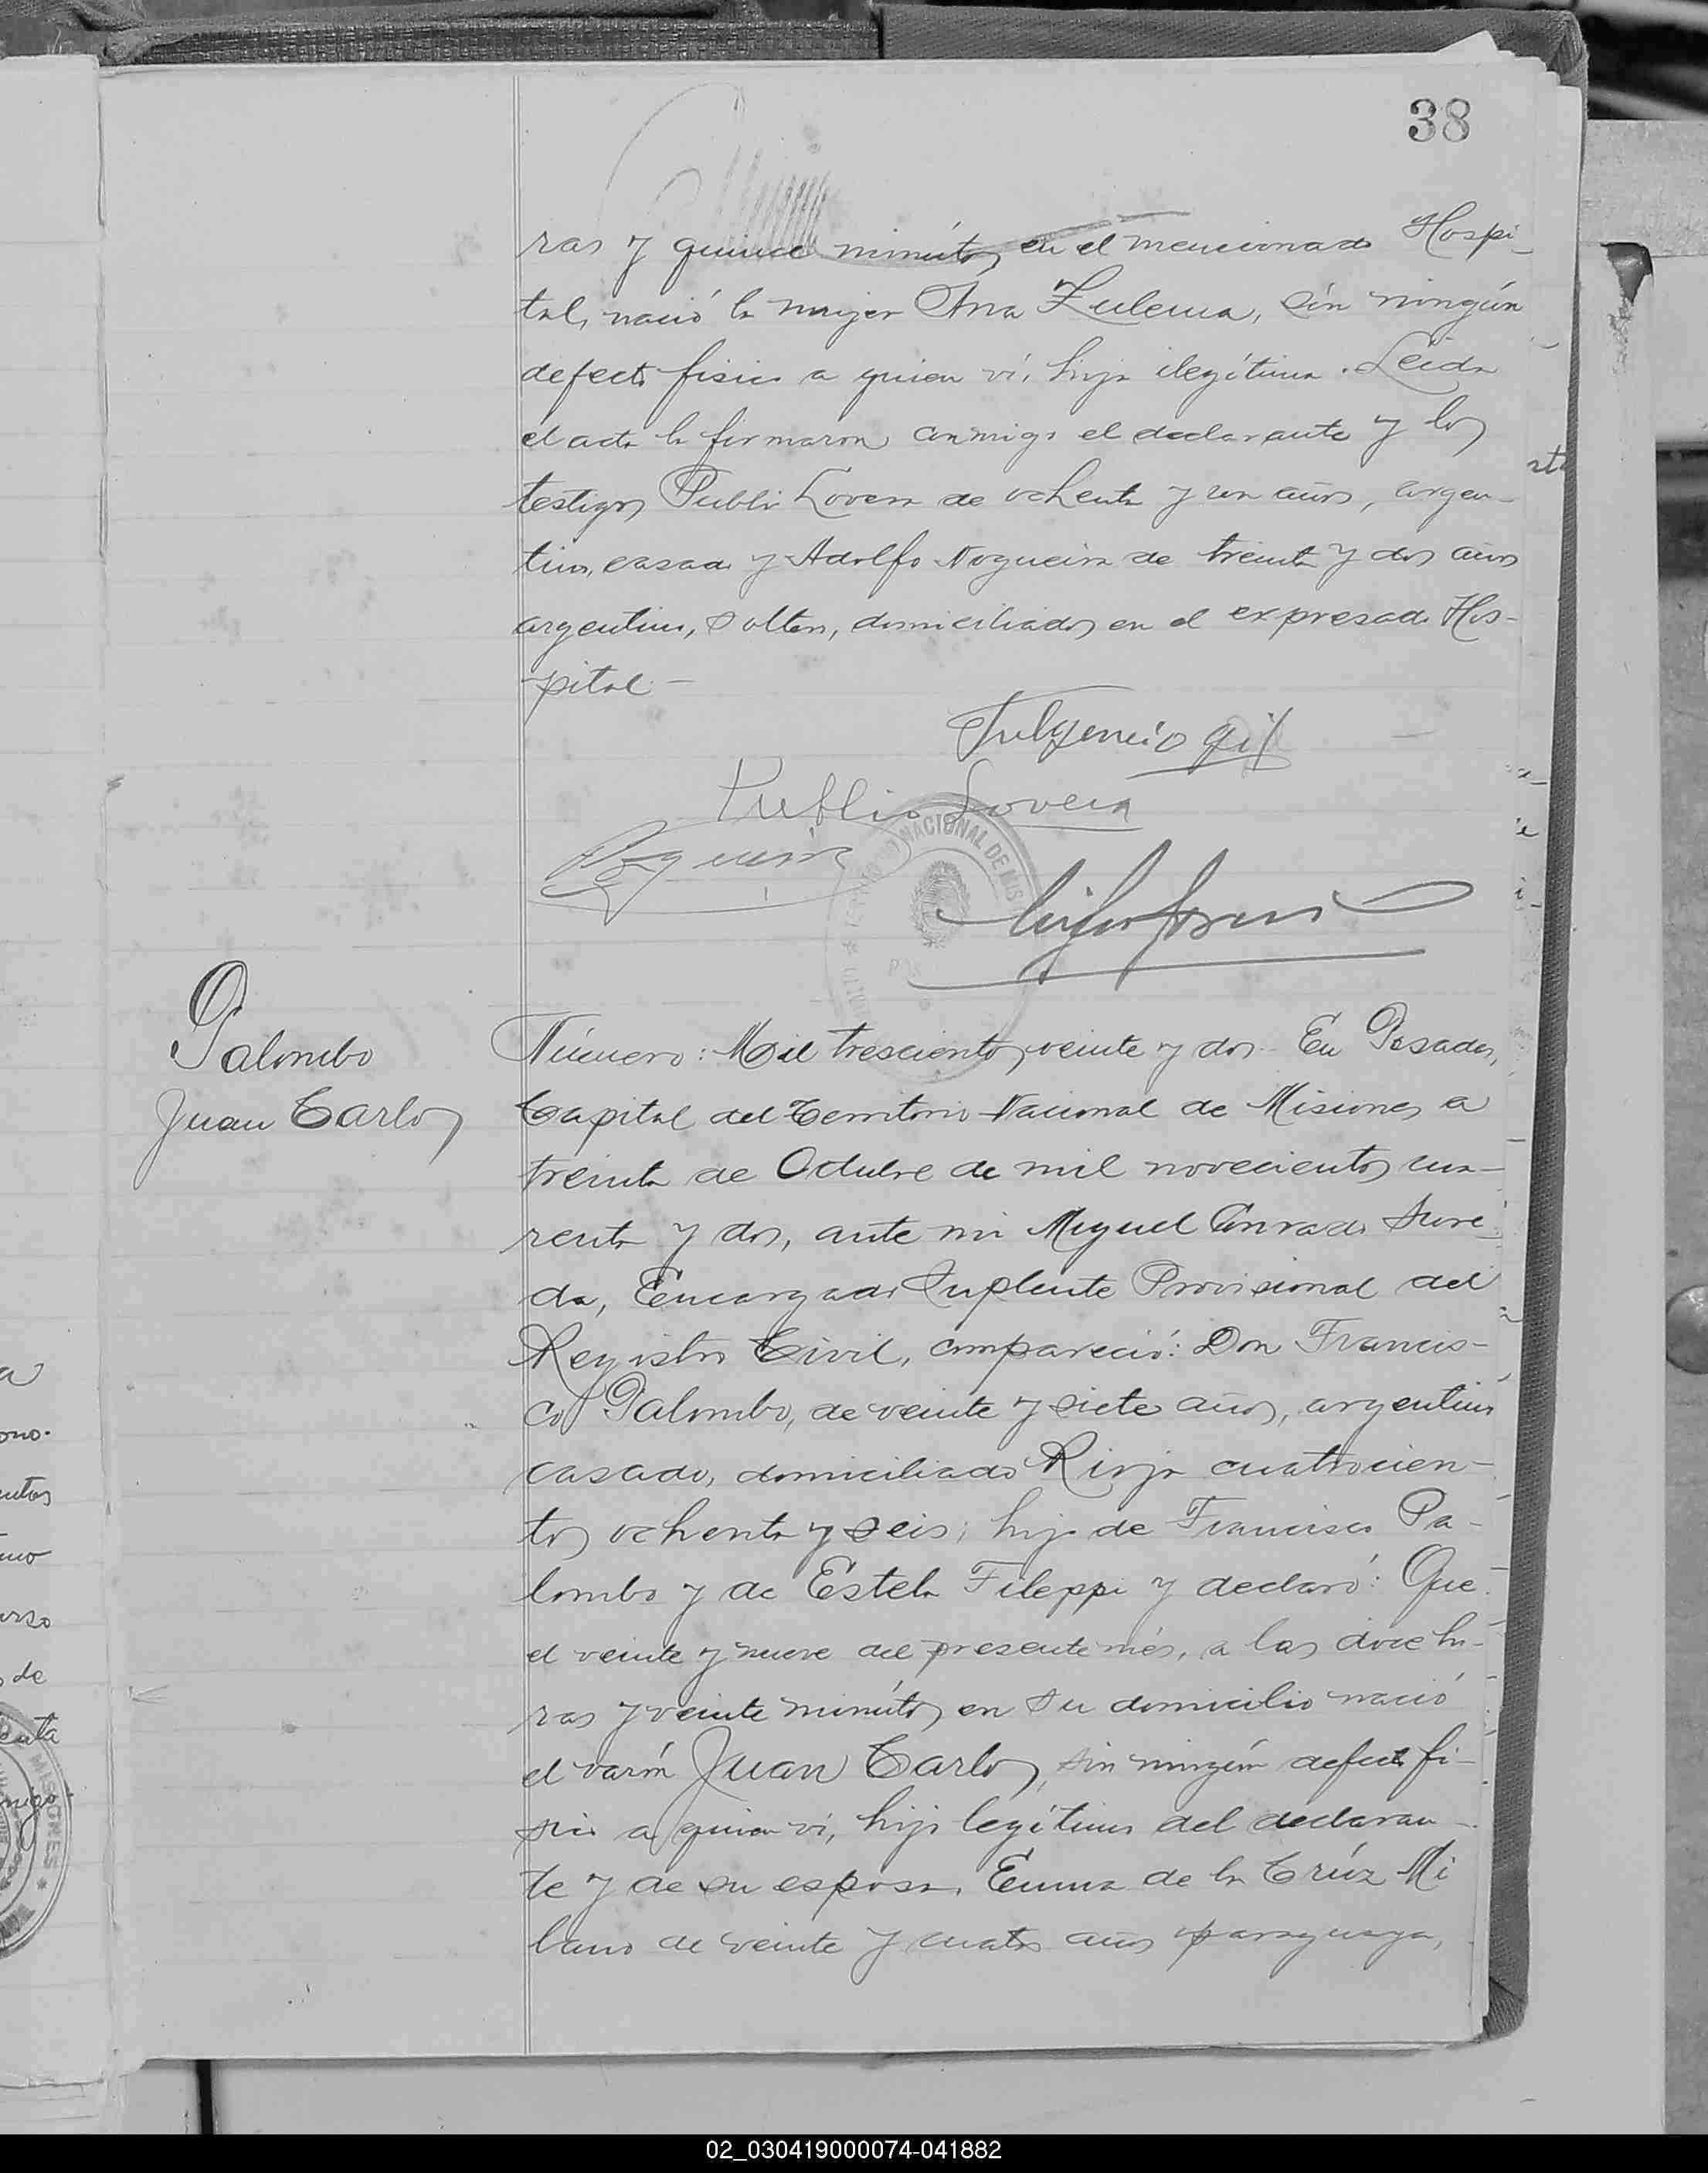 38
ras y quince minutos en el mencionado Hospi-
tal, nació la mujer Ana Zulema, sin ningún
defecto fisico a quien ví, hija ilegítima. Leida
el acta la firmaron conmigo el declarante y los
testigos Publio Lovera de ochenta y un años, argen-
tino, casado y Adolfo Nogueira de treinta y dos años
argentino, soltero, domiciliados en el expresado Hos-
pital-
Fulgencio Gil
Publio Lovera
Nogueira
NACIONAL DE MIS
Palombo
Juan Carlos
Número: Mil trescientos veinte y dos- En Posadas,
Capital del Territorio Nacional de Misiones a
treinta de Octubre de mil novecientos cua-
renta y dos, ante mi Miguel Conrado Sure-
da, Encargado Suplente Provisional del
Registro Civil, compareció: Don Francis-
co Palombo, de veinte y siete años, argentino
casado, domiciliado Rioja cuatrocien-
tos ochenta y seis; hijo de Francisco Pa-
lombo y de Estela Fileppi y declaró: Que
el veinte y nueve del presente més, a las doce ho-
ras y veinte minútos en su domicilio nació
el varón Juan Carlos, sin ningún defecto fi-
sico a quien ví, hijo legítimo del declaran-
te y de su esposa, Emma de la Crúz Mi
lano de veinte y cuatro años paraguaya,
MISIONES
02_030419000074-041882